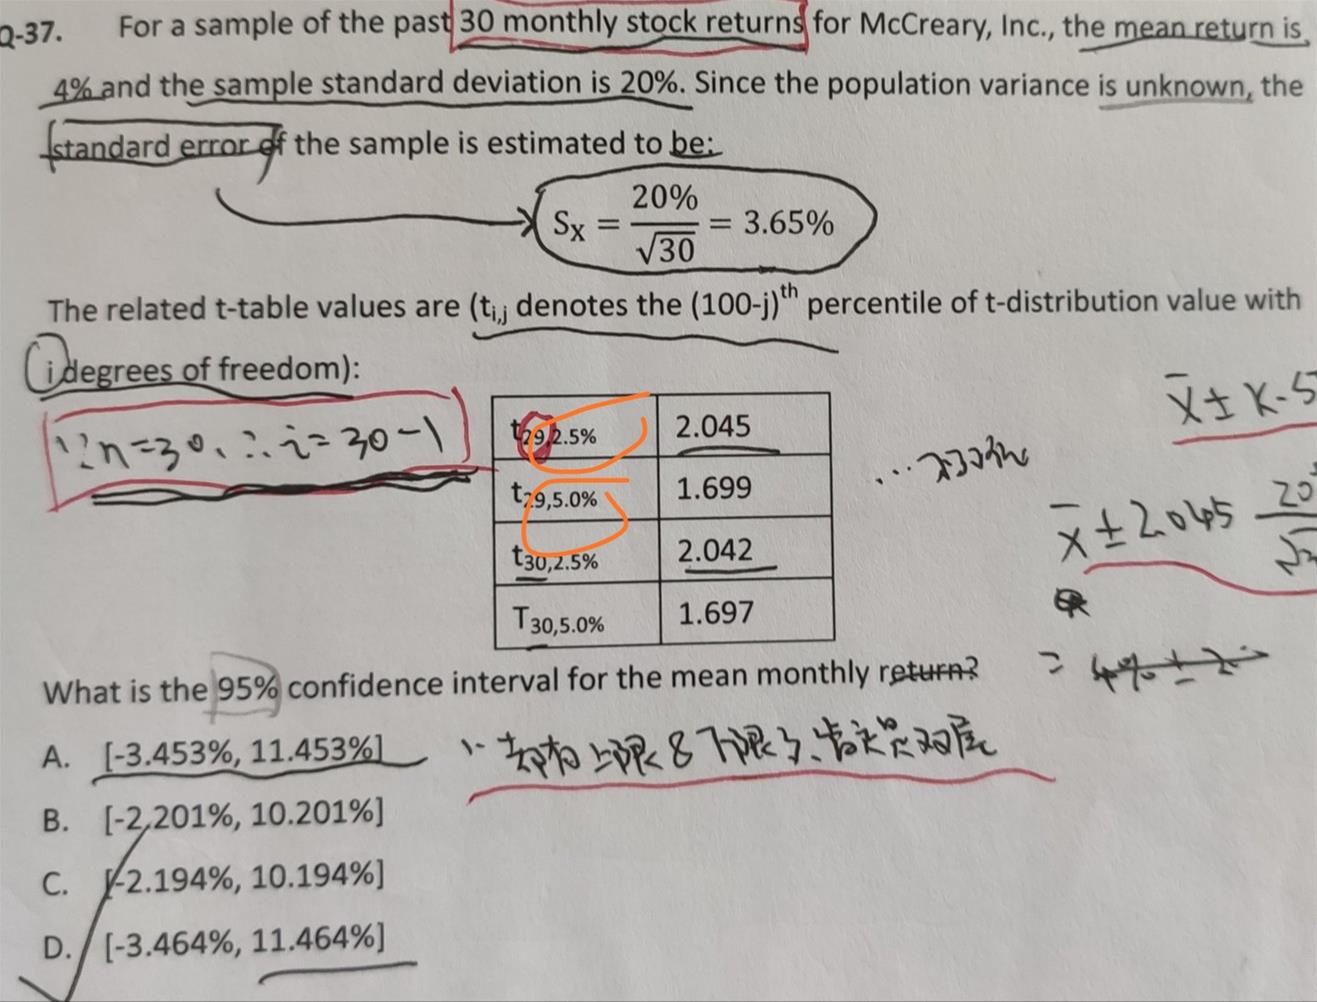 Q-37. For a sample of the past 30 monthly stock returns for McCreary, Inc., the mean return is
4% and the sample standard deviation is 20%. Since the population variance is unknown, the
standard error of the sample is estimated to be:
Sx = 20% / √30 = 3.65%
The related t-table values are (ti,j denotes the (100-j)th percentile of t-distribution value with
i degrees of freedom):
∵n=30, ∴i=30-1
t29,2.5% 2.045
t29,5.0% 1.699
t30,2.5% 2.042
T30,5.0% 1.697
x̄ ± K·S
x̄ ± 2.045 20
= 4% ± 2
What is the 95% confidence interval for the mean monthly return?
A. [-3.453%, 11.453%]
B. [-2.201%, 10.201%]
C. [-2.194%, 10.194%]
D. [-3.464%, 11.464%]